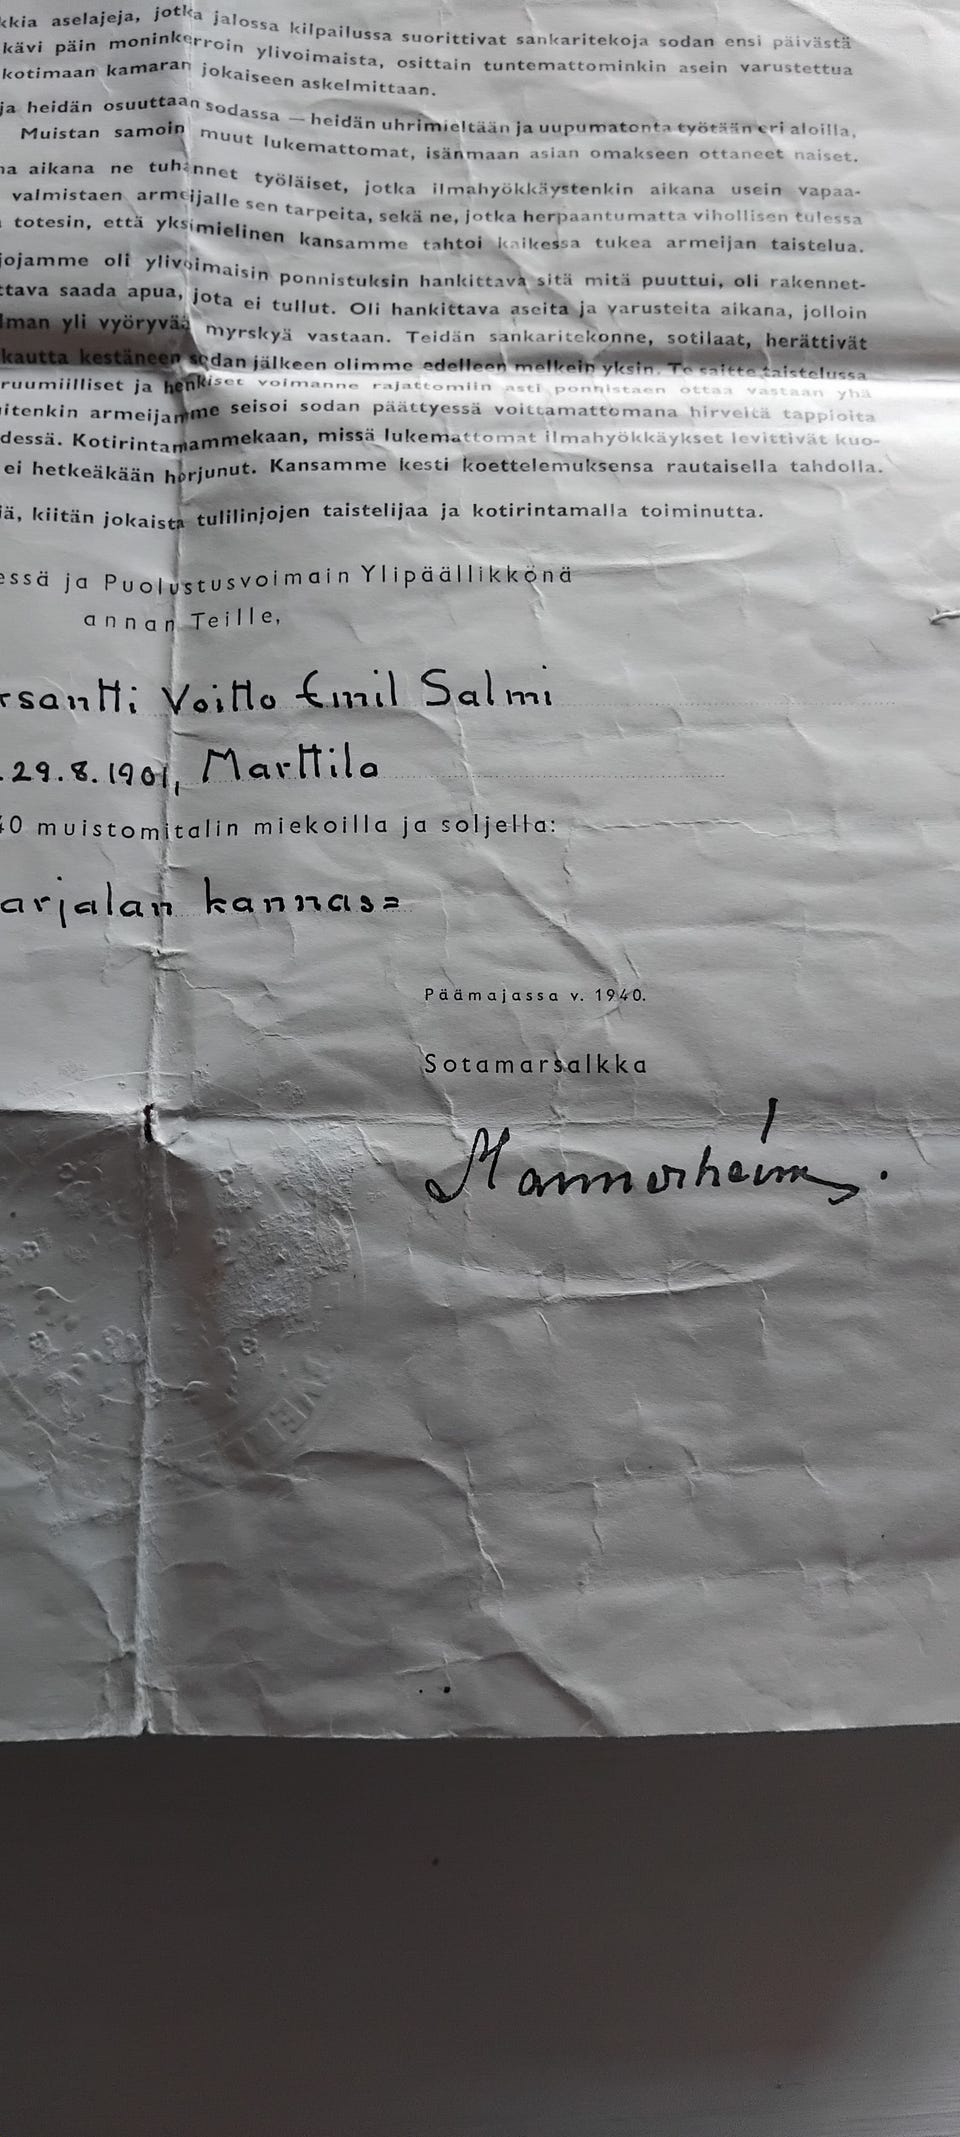 kkia aselajeja, jotka jalossa kilpailussa suorittivat sankaritekoja sodan ensi päivästä
kävi päin moninkerroin ylivoimaista, osittain tuntemattominkin asein varustettua
kotimaan kamaran jokaiseen askelmittaan.
ja heidän osuuttaan sodassa — heidän uhrimieltään ja uupumatonta työtään eri aloilla,
Muistan samoin muut lukemattomat, isänmaan asian omakseen ottaneet naiset.
na aikana ne tuhannet työläiset, jotka ilmahyökkäystenkin aikana usein vapaa-
valmistaen armeijalle sen tarpeita, sekä ne, jotka herpaantumatta vihollisen tulessa
totesin, että yksimielinen kansamme tahtoi kaikessa tukea armeijan taistelua.
jojamme oli ylivoimaisin ponnistuksin hankittava sitä mitä puuttui, oli rakennet-
ttava saada apua, jota ei tullut. Oli hankittava aseita ja varusteita aikana, jolloin
lman yli vyöryvää myrskyä vastaan. Teidän sankaritekonne, sotilaat, herättivät
kautta kestäneen sodan jälkeen olimme edelleen melkein yksin. Te saitte taistelussa
ruumiilliset ja henkiset voimanne rajattomiin asti ponnistaen ottaa vastaan yhä
uitenkin armeijamme seisoi sodan päättyessä voittamattomana hirveitä tappioita
dessä. Kotirintamammekaan, missä lukemattomat ilmahyökkäykset levittivät kuo-
ei hetkeäkään horjunut. Kansamme kesti koettelemuksensa rautaisella tahdolla.
iä, kiitän jokaista tulilinjojen taistelijaa ja kotirintamalla toiminutta.
essä ja Puolustusvoimain Ylipäällikkönä
annan Teille,
rsantti Voitto Emil Salmi
. 29.8.1901, Marttila
40 muistomitalin miekoilla ja soljella:
arjalan kannas=
Päämajassa v. 1940.
Sotamarsalkka
Mannerheim.